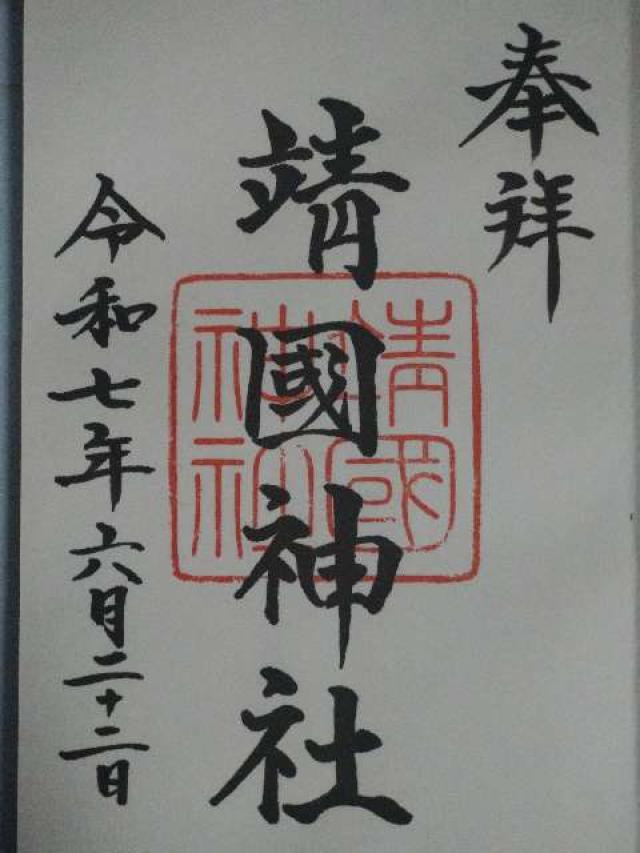 奉拝
靖國神社
令和七年六月二十二日
靖國神社